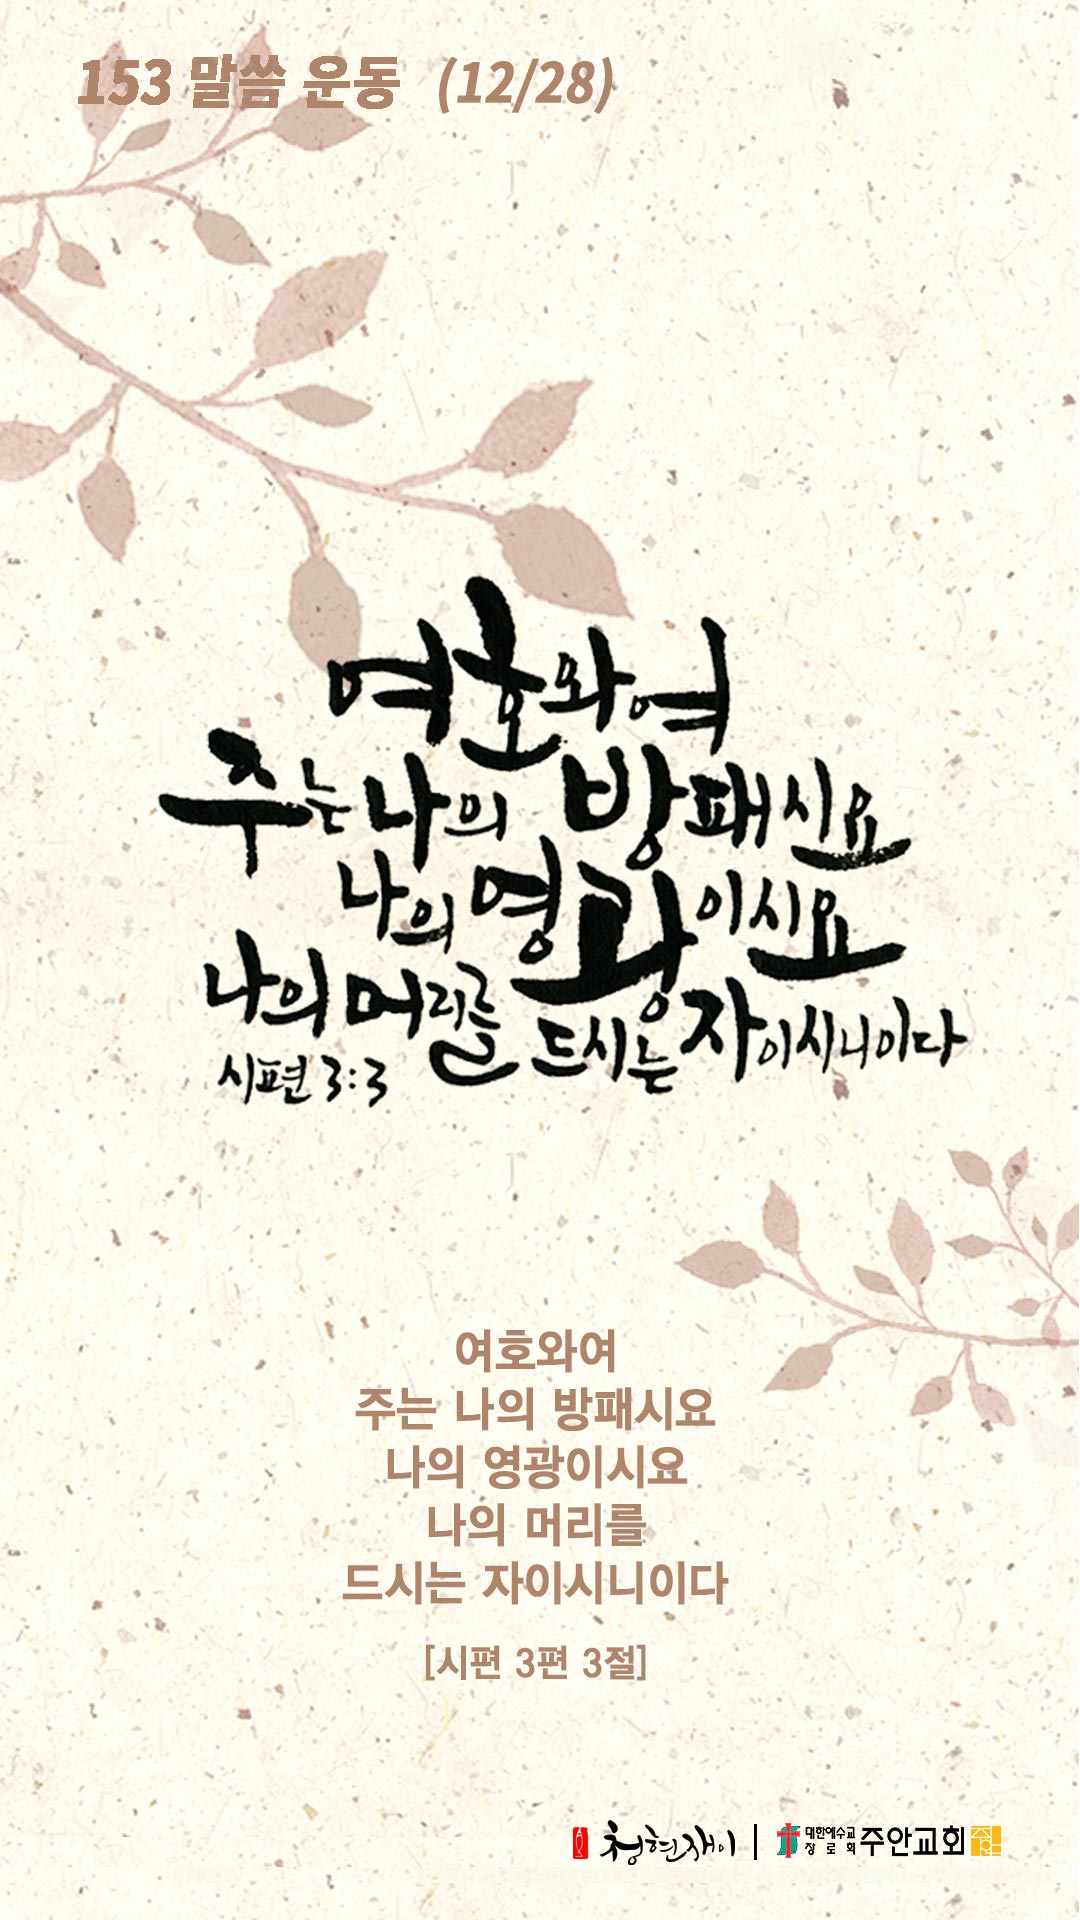 153 말씀 운동 (12/28)
여호와여
주는 나의 방패시요
나의 영광이시요
나의 머리를 드시는 자이시니이다
시편 3:3
여호와여
주는 나의 방패시요
나의 영광이시요
나의 머리를
드시는 자이시니이다
[시편 3편 3절]
청현재이 | 대한예수교장로회 주안교회